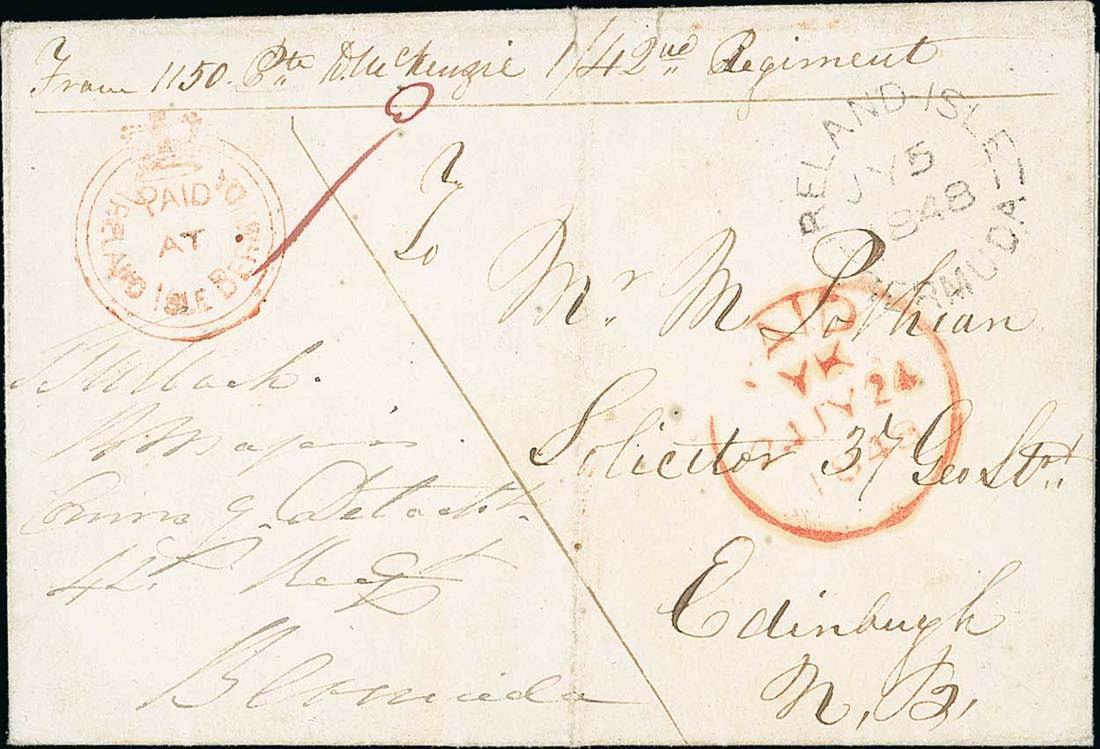 From 1150. Pte D. McKenzie 1/42nd Regiment
PAID
AT
IRELAND ISLE BERMUDA
IRELAND ISLE
JY 5
1848
BERMUDA
1
To
Mr. M. Pothian
Solicitor 37 Geo Str.
Edinburgh
N. B.
PAID
JY 24
1848
Major
Comg. Detacht.
42d. Regt
Bermuda